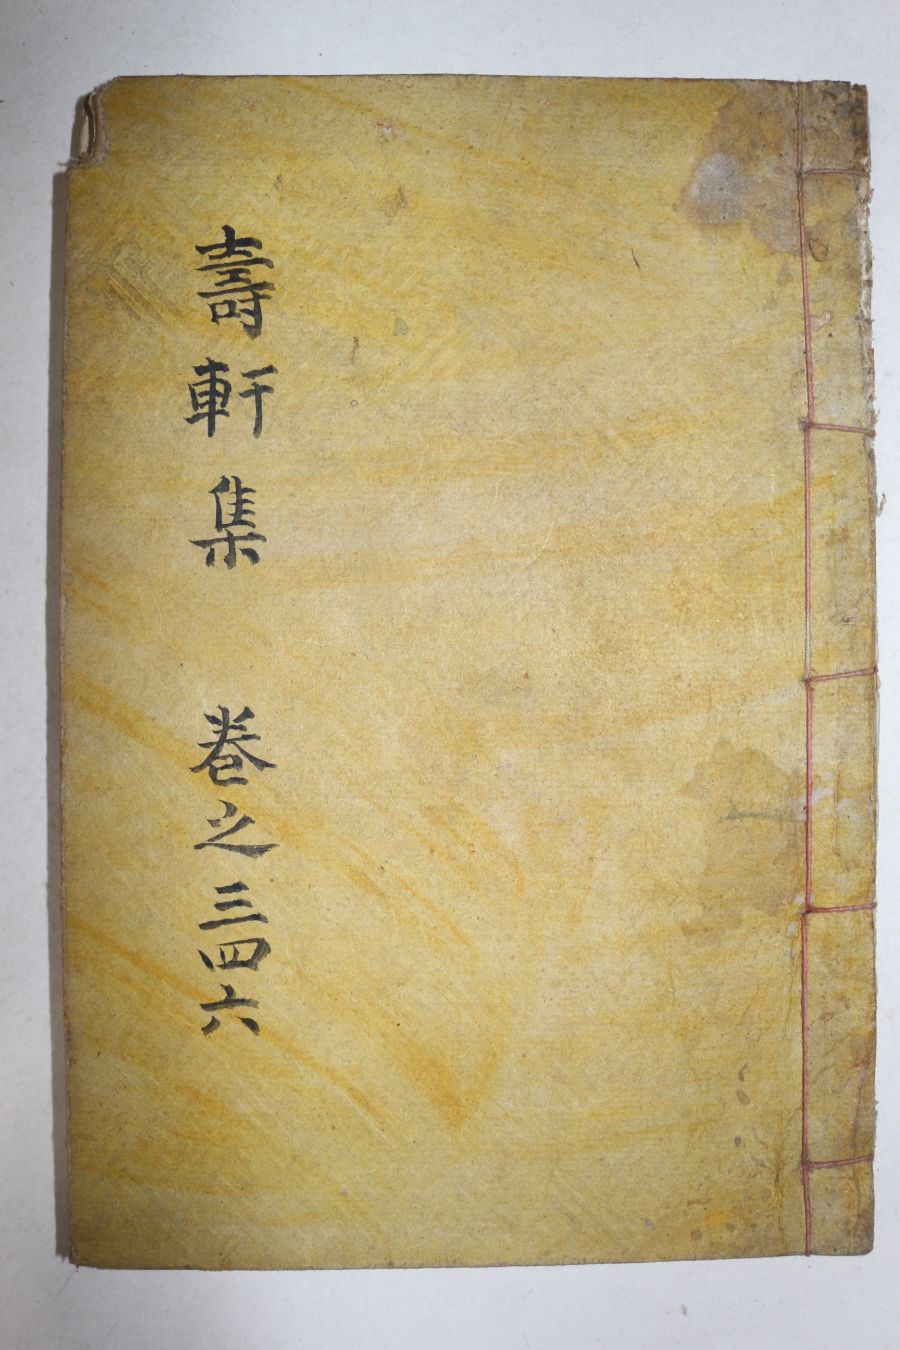 壽軒集 卷之三四六